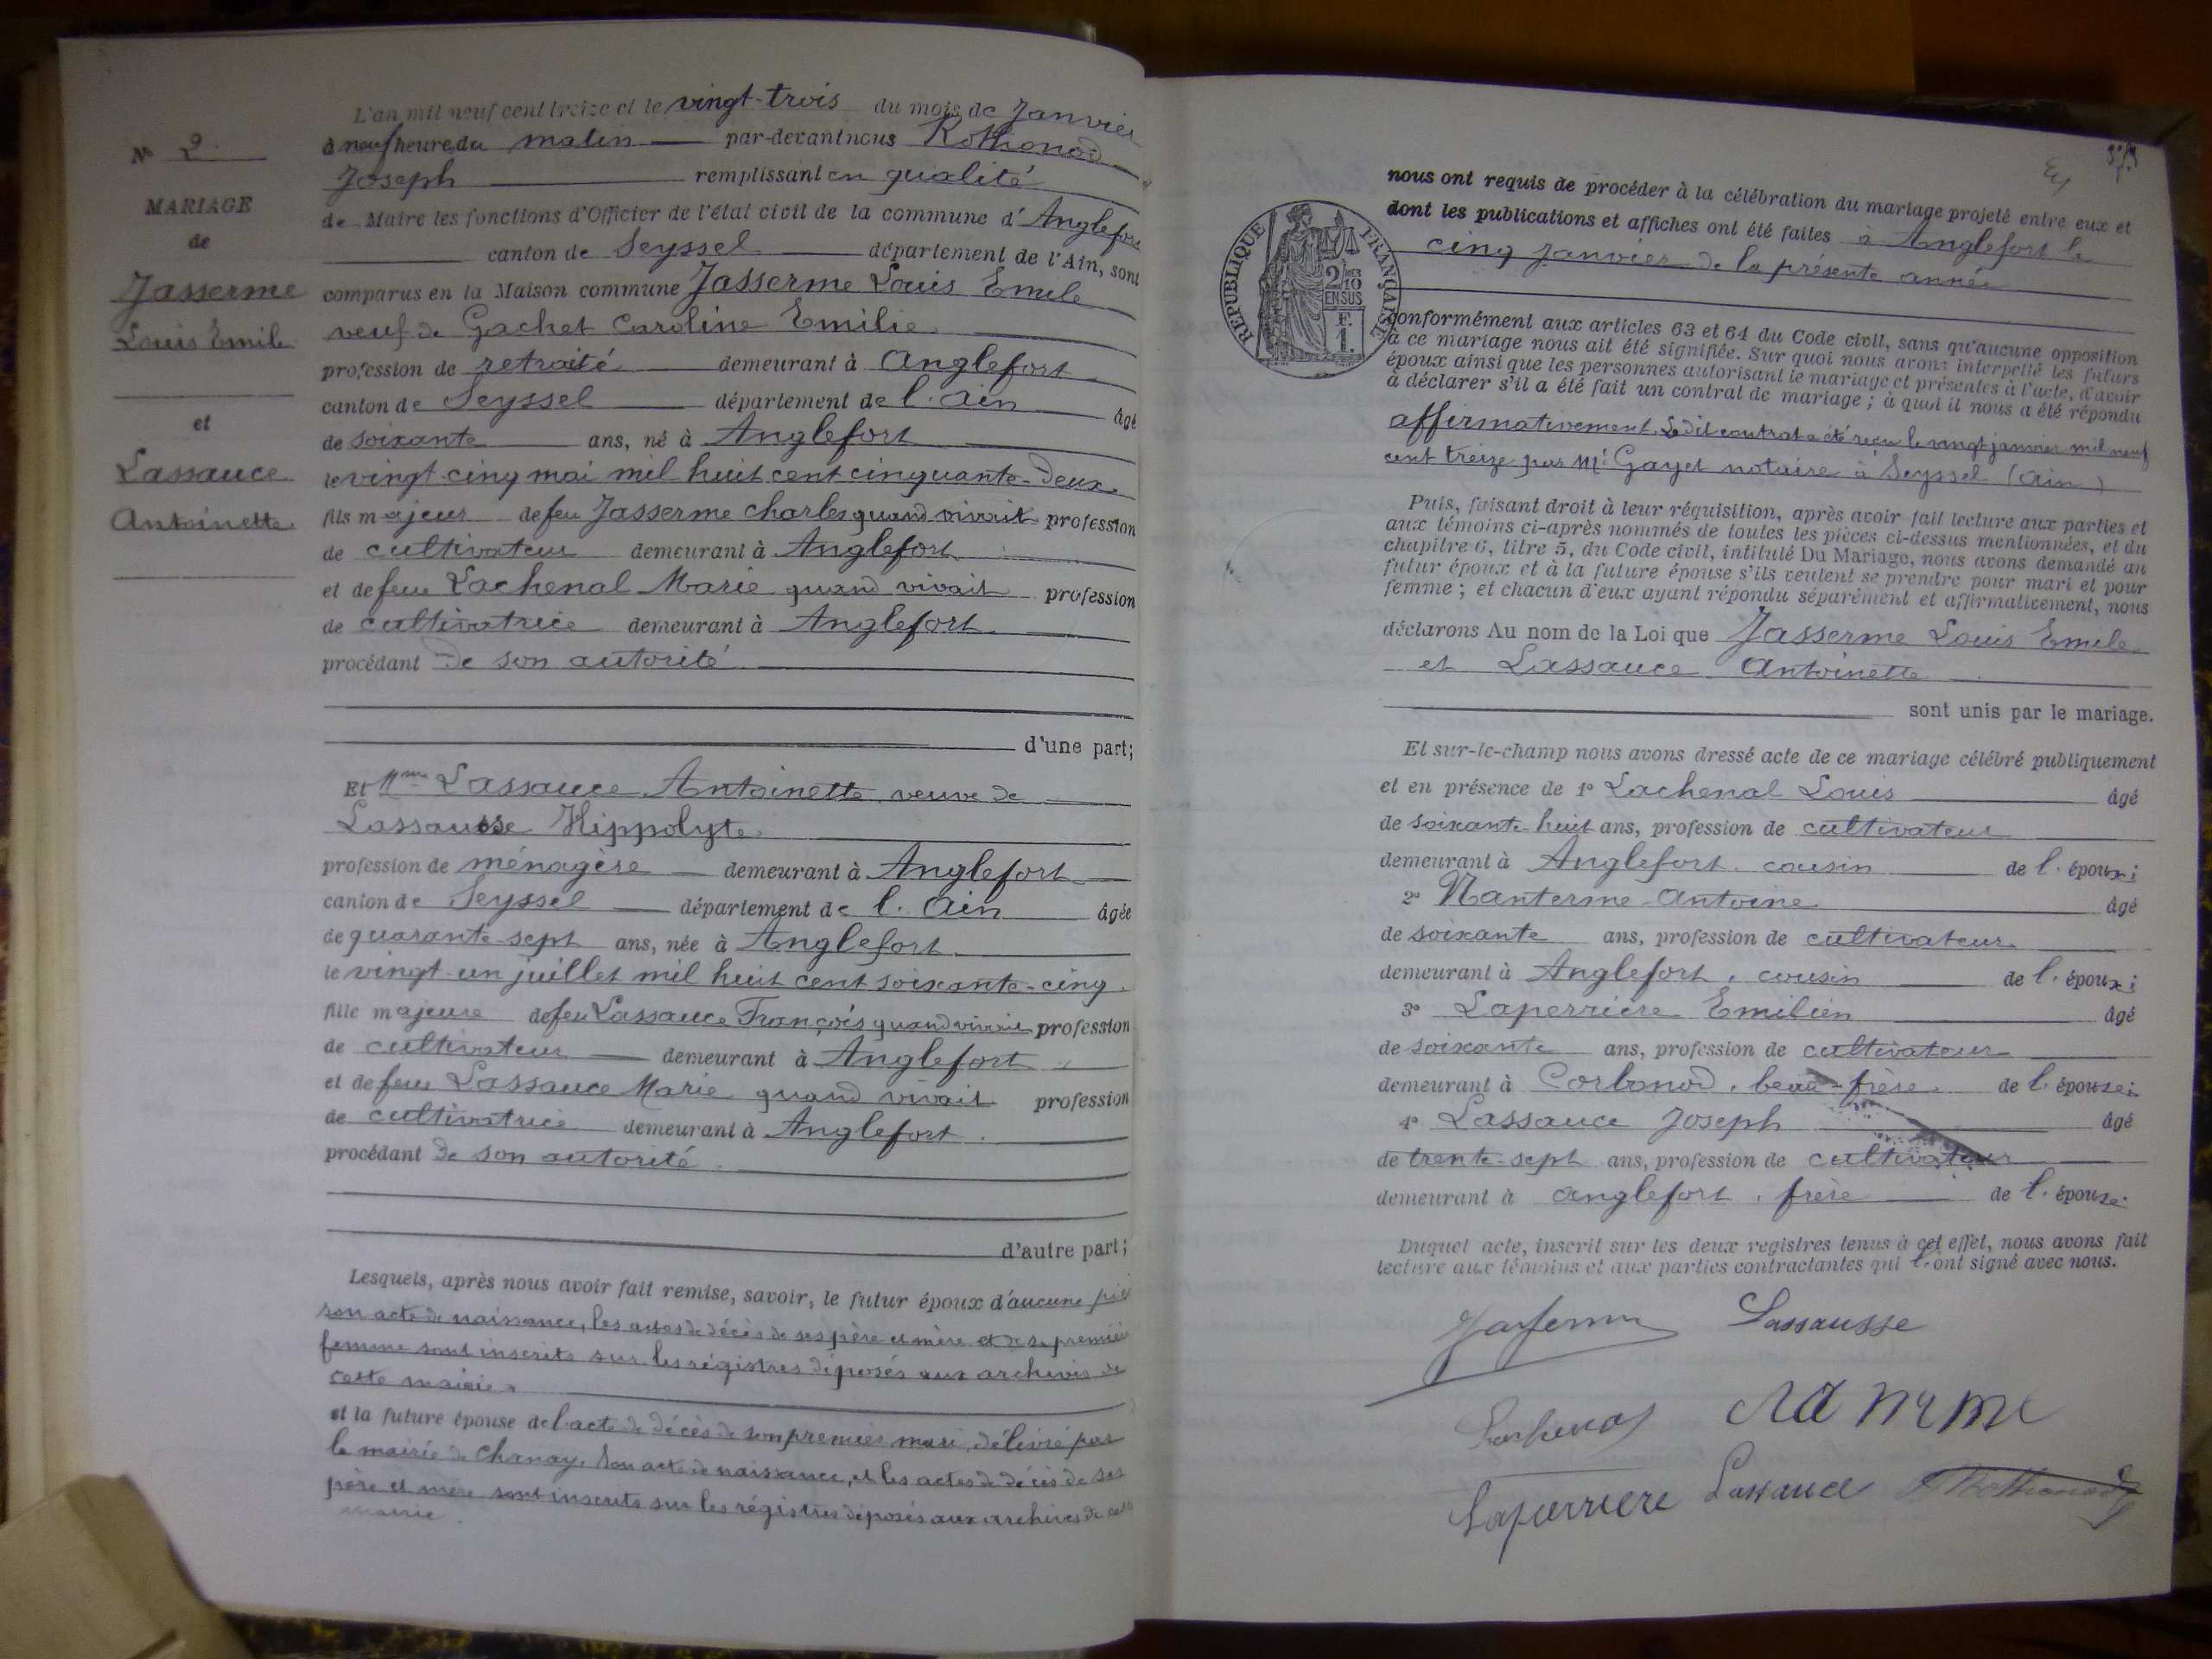 N° 2
MARIAGE
de
Jasserme
Louis Emile
et
Lassauce
Antoinette
L'an mil neuf cent treize et le vingt-trois du mois de Janvier
à neuf heures du matin par-devant nous Rothonod
Joseph remplissant en qualité
de Maire les fonctions d'Officier de l'état civil de la commune d'Anglefort
canton de Seyssel département de l'Ain, sont
comparus en la Maison commune Jasserme Louis Emile
veuf de Gachet Caroline Emilie
profession de retraité demeurant à Anglefort
canton de Seyssel département de l'Ain âgé
de soixante ans, né à Anglefort
le vingt-cinq mai mil huit cent cinquante-deux
fils majeur de feu Jasserme Charles quand vivait profession
de cultivateur demeurant à Anglefort
et de feue Lachenal Marie quand vivait profession
de cultivatrice demeurant à Anglefort.
procédant de son autorité
d'une part;
Et Mme Lassauce Antoinette veuve de
Lassausse Hippolyte
profession de ménagère demeurant à Anglefort
canton de Seyssel département de l'Ain âgée
de quarante-sept ans, née à Anglefort
le vingt-un juillet mil huit cent soixante-cinq.
fille majeure de feu Lassauce François quand vivait profession
de cultivateur demeurant à Anglefort
et de feue Lassauce Marie quand vivait profession
de cultivatrice demeurant à Anglefort.
procédant de son autorité.
d'autre part;
Lesquels, après nous avoir fait remise, savoir, le futur époux d'aucune
son acte de naissance, les actes de décès de ses père et mère et de sa première
femme sont inscrits sur les régistres déposés aux archives de
cette mairie.
et la future épouse de l'acte de décès de son premier mari, délivré par
la mairie de Chanay. Son acte de naissance, et les actes de décès de ses
père et mère sont inscrits sur les régistres déposés aux archives de cette
mairie.
nous ont requis de procéder à la célébration du mariage projeté entre eux et
dont les publications et affiches ont été faites à Anglefort le
cinq janvier de la présente année
RÉPUBLIQUE FRANÇAISE
2/10
EN SUS
F.
1.
conformément aux articles 63 et 64 du Code civil, sans qu'aucune opposition
à ce mariage nous ait été signifiée. Sur quoi nous avons interpellé les futurs
époux ainsi que les personnes autorisant le mariage et présentes à l'acte, d'avoir
à déclarer s'il a été fait un contrat de mariage; à quoi il nous a été répondu
affirmativement. Ledit contrat a été reçu le vingt janvier mil neuf
cent treize par Me Gayet notaire à Seyssel (Ain)
Puis, faisant droit à leur réquisition, après avoir fait lecture aux parties et
aux témoins ci-après nommés de toutes les pièces ci-dessus mentionnées, et du
chapitre 6, titre 5, du Code civil, intitulé Du Mariage, nous avons demandé au
futur époux et à la future épouse s'ils veulent se prendre pour mari et pour
femme; et chacun d'eux ayant répondu séparément et affirmativement, nous
déclarons Au nom de la Loi que Jasserme Louis Emile
et Lassauce Antoinette
sont unis par le mariage.
Et sur-le-champ nous avons dressé acte de ce mariage célébré publiquement
et en présence de 1° Lachenal Louis âgé
de soixante-huit ans, profession de cultivateur
demeurant à Anglefort. cousin de l'époux;
2° Nanterme Antoine âgé
de soixante ans, profession de cultivateur
demeurant à Anglefort, cousin de l'époux;
3° Laperrière Emilien âgé
de soixante ans, profession de cultivateur
demeurant à Corbonod, beau-frère de l'épouse;
4° Lassauce Joseph âgé
de trente-sept ans, profession de cultivateur
demeurant à Anglefort, frère de l'épouse.
Duquel acte, inscrit sur les deux registres tenus à cet effet, nous avons fait
lecture aux témoins et aux parties contractantes qui l'ont signé avec nous.
Lassausse
Laperriere Lassauce Rothonod